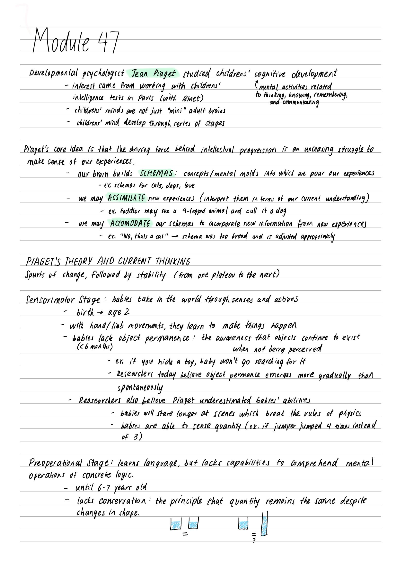 Module 47
Developmental psychologist Jean Piaget studied childrens' cognitive development
- interest came from working with childrens'
intelligence tests in Paris (with Binet)
↑ mental activities related
to thinking, knowing, remembering,
and communicating
- childrens' minds are not just "mini" adult brains
- childrens' mind develop through series of stages
Piaget's core idea is that the driving force behind intellectual progression is an unceasing struggle to
make sense of our experiences.
- our brain builds SCHEMAS: concepts/mental molds into which we pour our experiences
- ex. schemas for cats, dogs, love
- we may ASSIMILATE new experiences (interpret them in terms of our current understanding)
- ex. toddler may see a 4-legged animal and call it a dog
- we may ACCOMODATE our schemas to incorporate new information from new experiences
- ex. "No, thats a cat" → schema was too broad and is adjusted appropriately
PIAGET'S THEORY AND CURRENT THINKING
Spurts of change, followed by stability (from one plateau to the next)
Sensorimotor Stage: babies take in the world through senses and actions
- birth → age 2
- with hand/limb movements, they learn to make things happen
- babies lack object permanence: the awareness that objects continue to exist
(<6 months)
when not being perceived
- ex. if you hide a toy, baby won't go searching for it
- Researchers today believe object permance emerges more gradually than
spontaneously
- Researchers also believe Piaget underestimated babies' abilities
- babies will stare longer at scenes which break the rules of physics
- babies are able to sense quantity (ex. if jumper jumped 4 times instead
of 3)
Preoperational Stage: learns language, but lacks capabilities to comprehend mental
operations of concrete logic.
- until 6-7 years old
- lacks conservation: the principle that quantity remains the same despite
changes in shape.
=
=
?